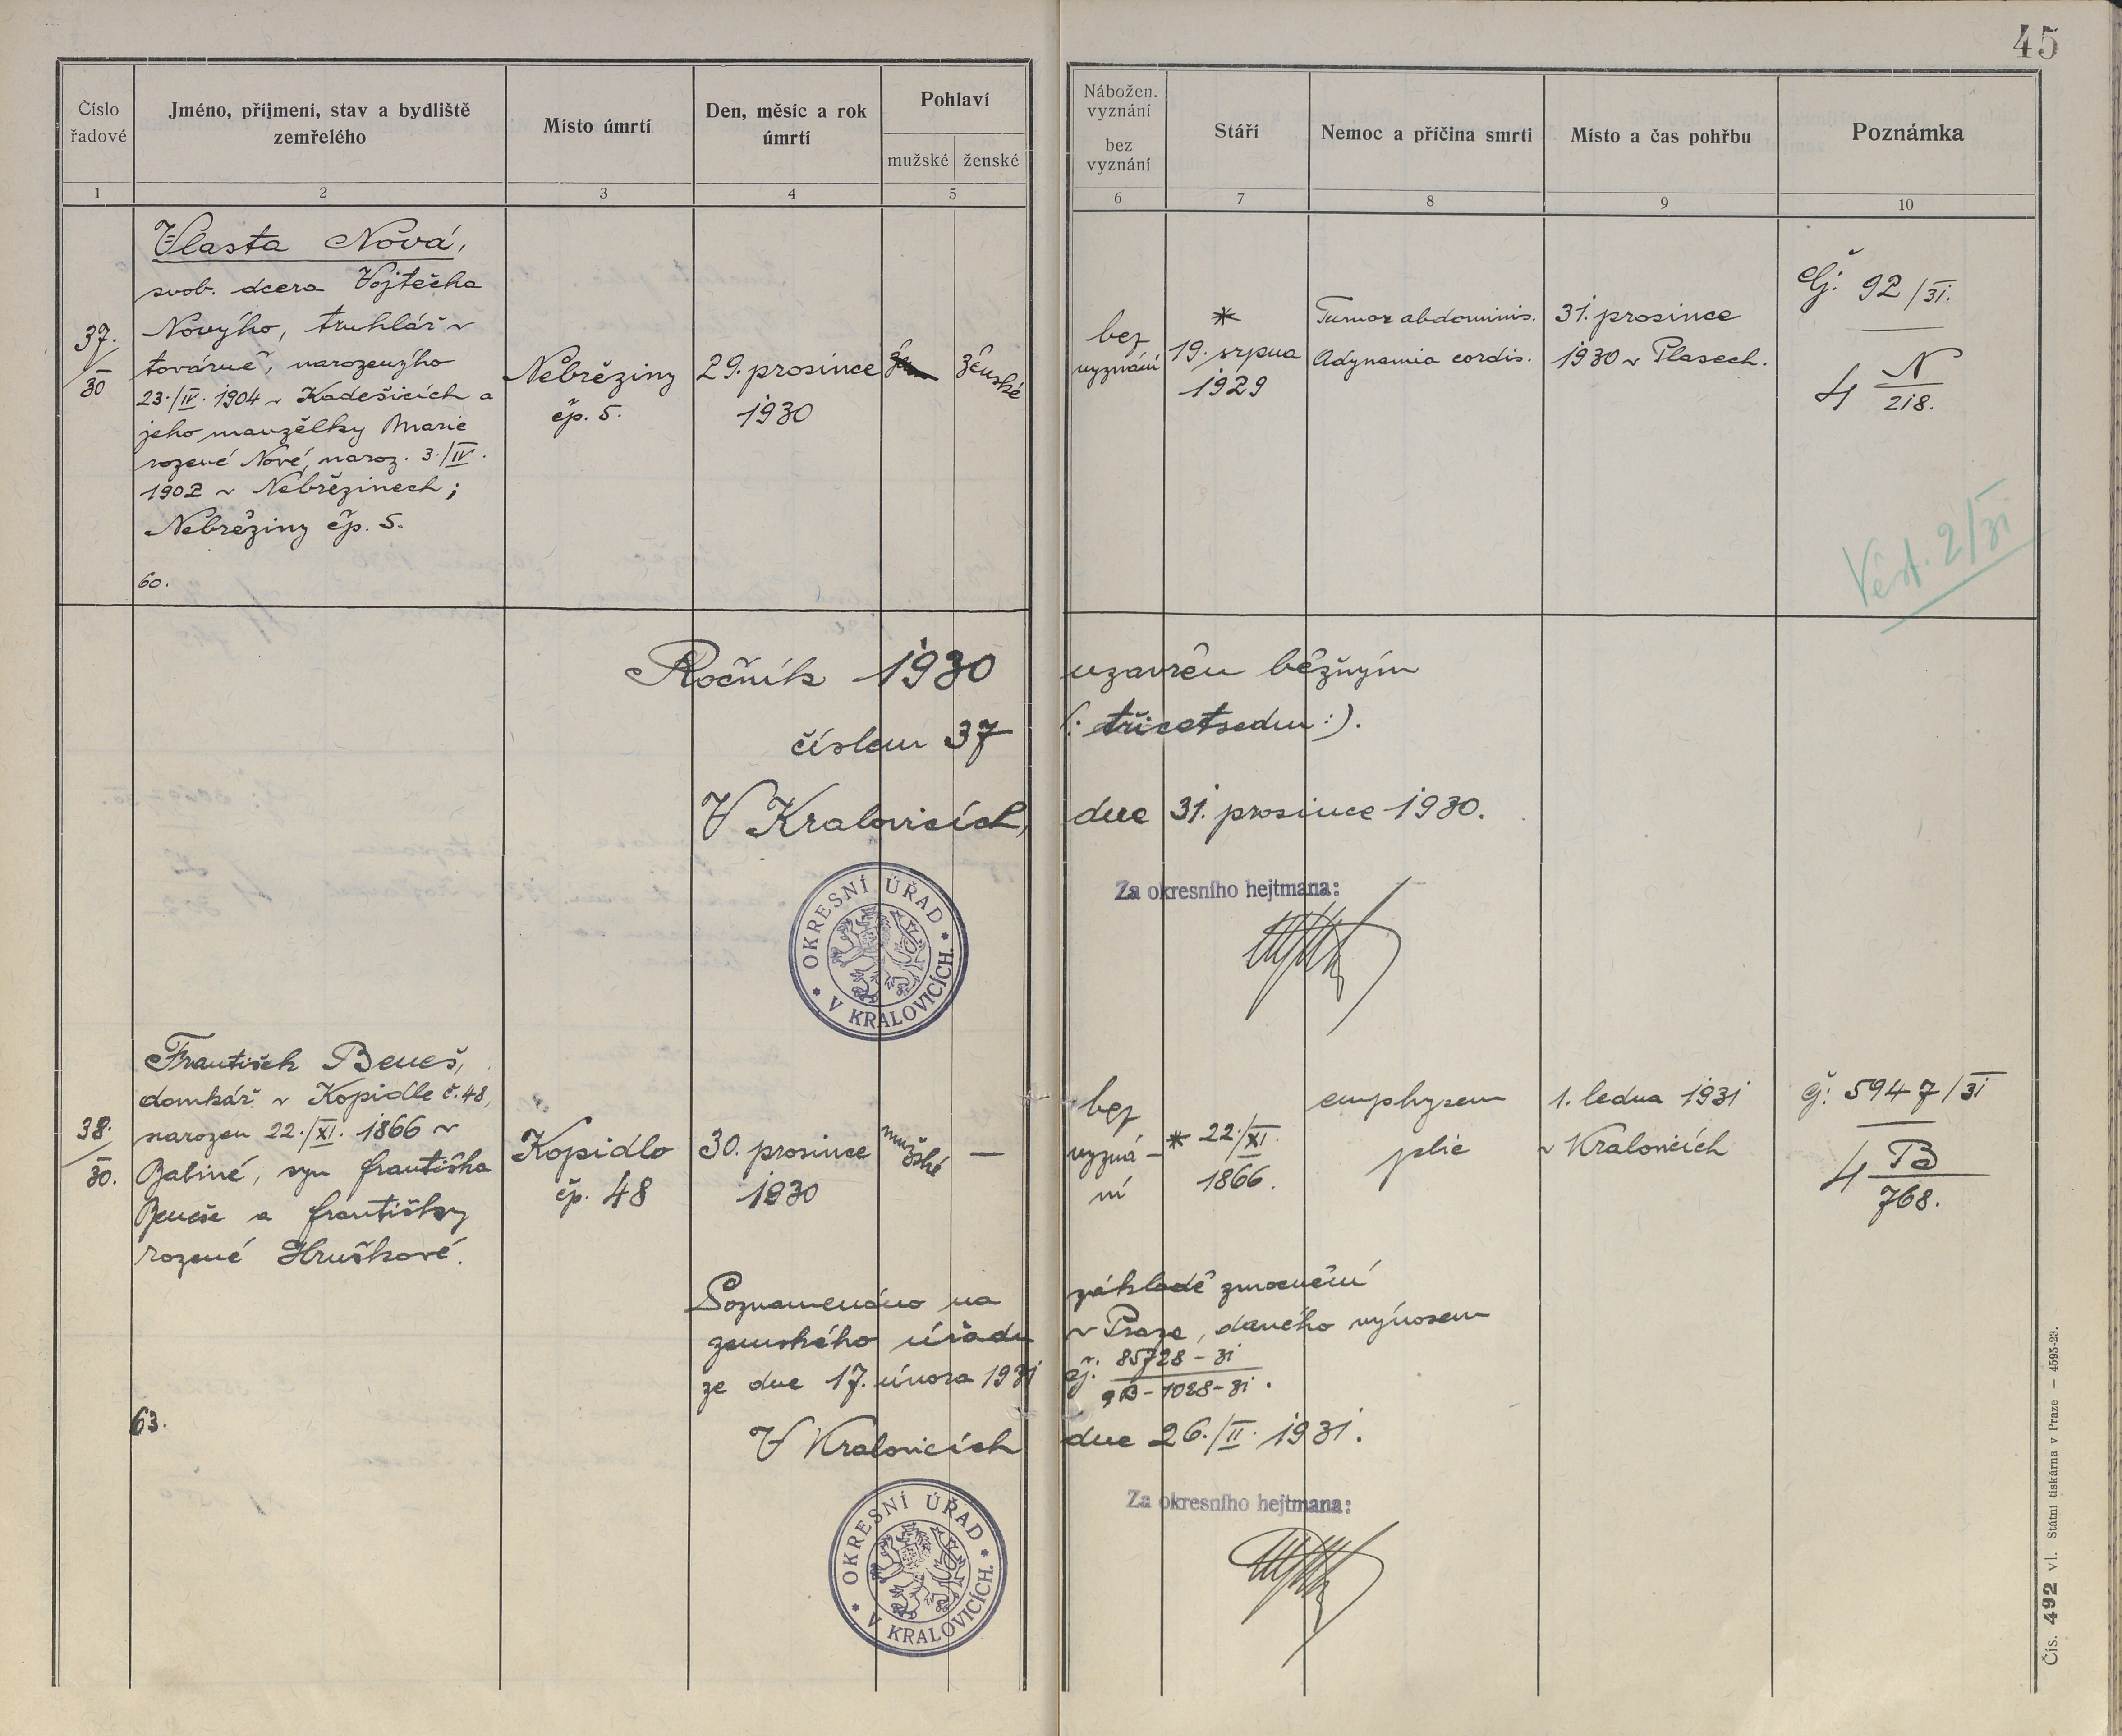 45
Číslo
řadové
Jméno, příjmení, stav a bydliště
zemřelého
Místo úmrtí
Den, měsíc a rok
úmrtí
Pohlaví
mužské
ženské
Nábožen.
vyznání
bez
vyznání
Stáří
Nemoc a příčina smrti
Místo a čas pohřbu
Poznámka
1
2
3
4
5
6
7
8
9
10
37.
30
Vlasta Nová,
svob. dcera Vojtěcha
Nového, truhlář v
továrně, narozeného
23./IV. 1904 v Kadešicích a
jeho manželky Marie
rozené Nové, naroz. 3./IV.
1902 v Nebřezinech;
Nebřeziny čp. 5.
60.
Nebřeziny
čp. 5.
29. prosince
1930
ženské
bez
vyznání
*
19. srpna
1929
Tumor abdominis.
Adynamia cordis.
31. prosince
1930 v Plasech.
čj: 92/31.
4 N
218.
Věst. 2/31
Ročník 1930 uzavřen běžným
číslem 37 (: třicetsedm :).
V Kralovicích, dne 31. prosince 1930.
Za okresního hejtmana:
OKRESNÍ ÚŘAD
V KRALOVICÍCH.
38.
30.
František Beneš,
domkář v Kopidle č. 48,
narozen 22./XI. 1866 v
Babině, syn Františka
Beneše a Františky
rozené Hruškové.
63.
Kopidlo
čp. 48
30. prosince
1930
mužské
—
bez
vyzná-
ní
* 22./XI.
1866.
emphysem
plic
1. ledna 1931
v Kralovicích
čj: 5947/31
4 B
768.
Poznamenáno na základě zmocnění
zemského úřadu v Praze, daného výnosem
ze dne 17. února 1931 čj: 85728-31
9B-1028-31.
V Kralovicích dne 26./II. 1931.
Za okresního hejtmana:
OKRESNÍ ÚŘAD
V KRALOVICÍCH.
Čís. 492 vl. Státní tiskárna v Praze — 4595-23.